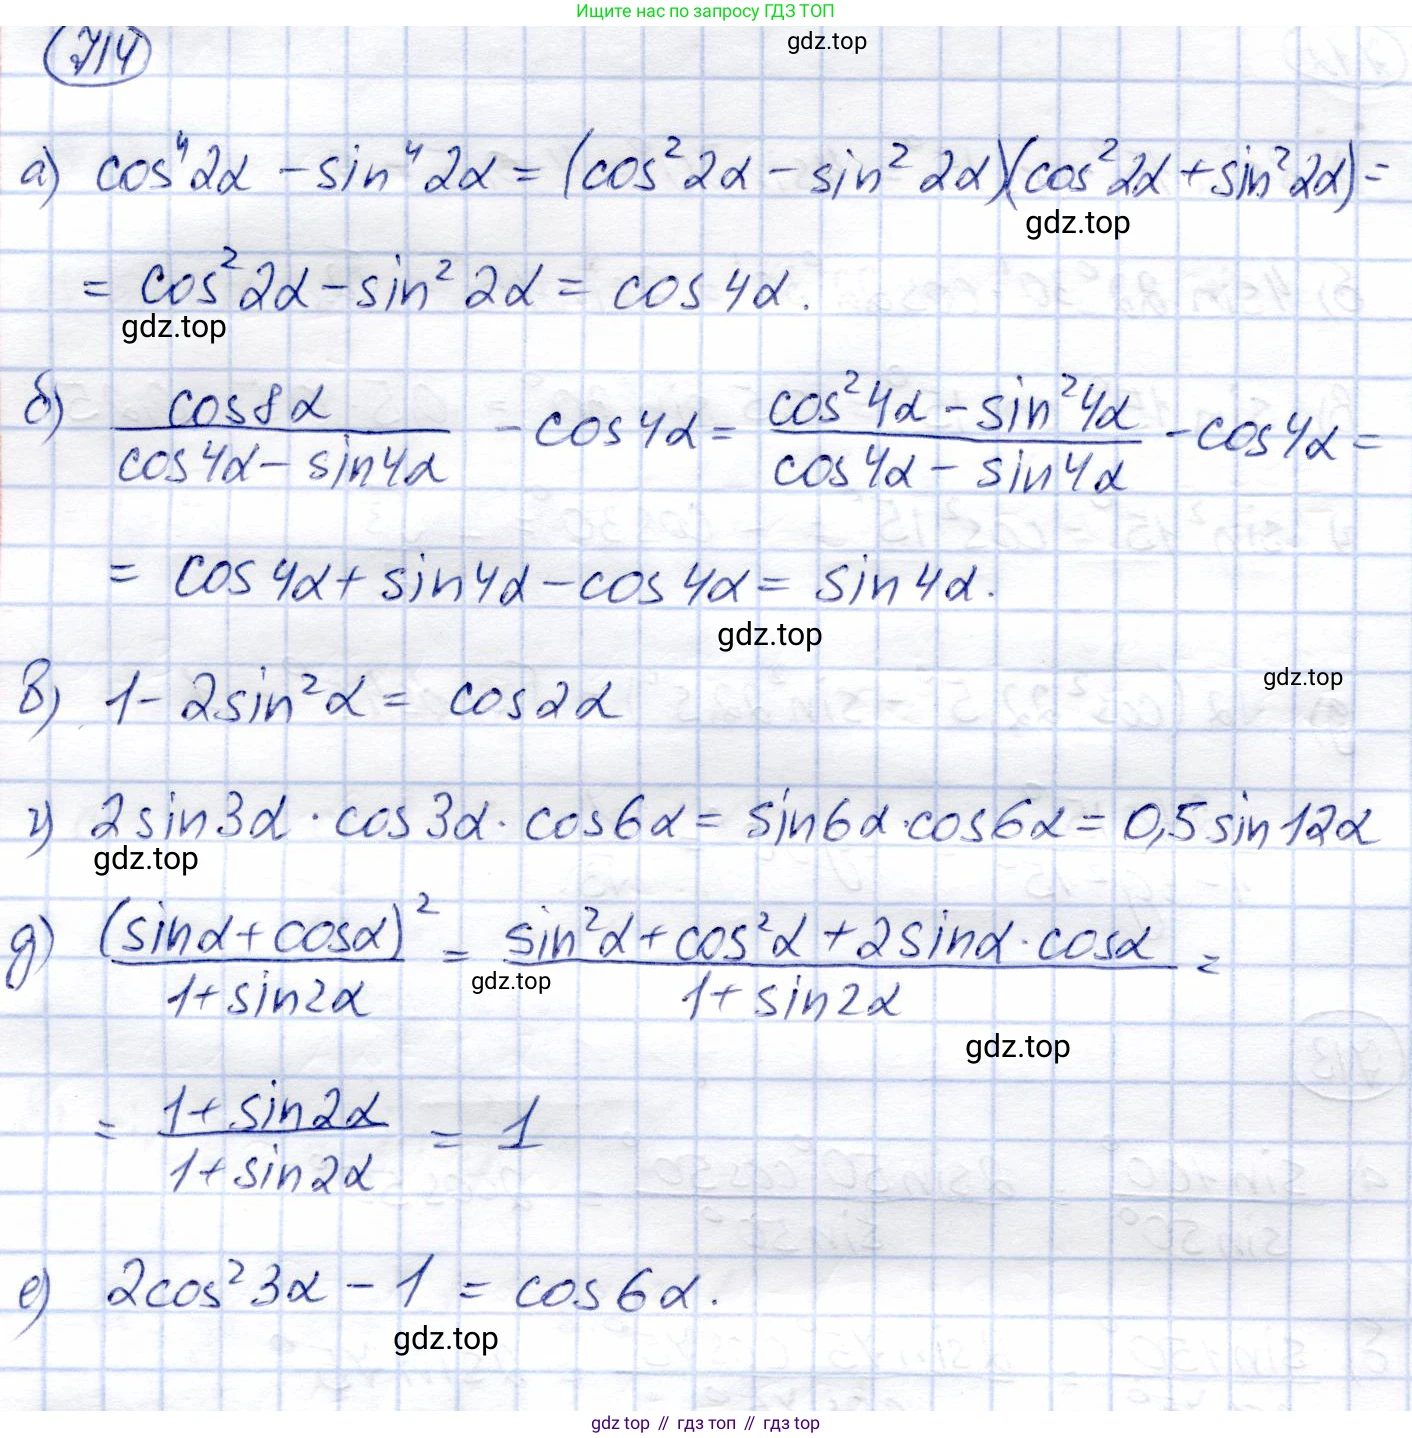 Ищите нас по запросу ГДЗ ТОП
714
gdz.top
а) cos⁴2α - sin⁴2α = (cos²2α - sin²2α)(cos²2α + sin²2α) =
gdz.top
= cos²2α - sin²2α = cos4α.
gdz.top
б) cos8α / (cos4α - sin4α) - cos4α = (cos²4α - sin²4α) / (cos4α - sin4α) - cos4α =
= cos4α + sin4α - cos4α = sin4α.
gdz.top
gdz.top
в) 1 - 2sin²α = cos2α
г) 2sin3α · cos3α · cos6α = sin6α · cos6α = 0,5sin12α
gdz.top
д) (sinα + cosα)² / (1 + sin2α) = (sin²α + cos²α + 2sinα · cosα) / (1 + sin2α) =
gdz.top
gdz.top
= (1 + sin2α) / (1 + sin2α) = 1
е) 2cos²3α - 1 = cos6α.
gdz.top
gdz top // гдз топ // гдз top